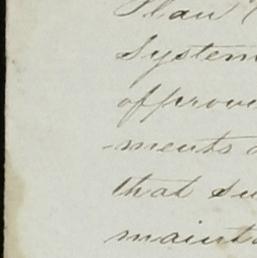 Plan (
System
approve
-ments a
that su
mainta